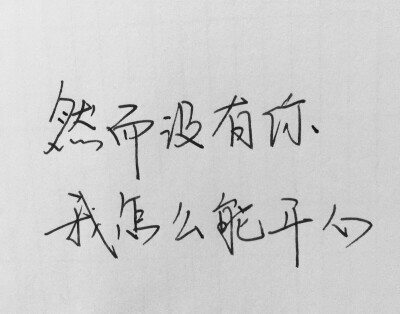 然而没有你、
我怎么能开心